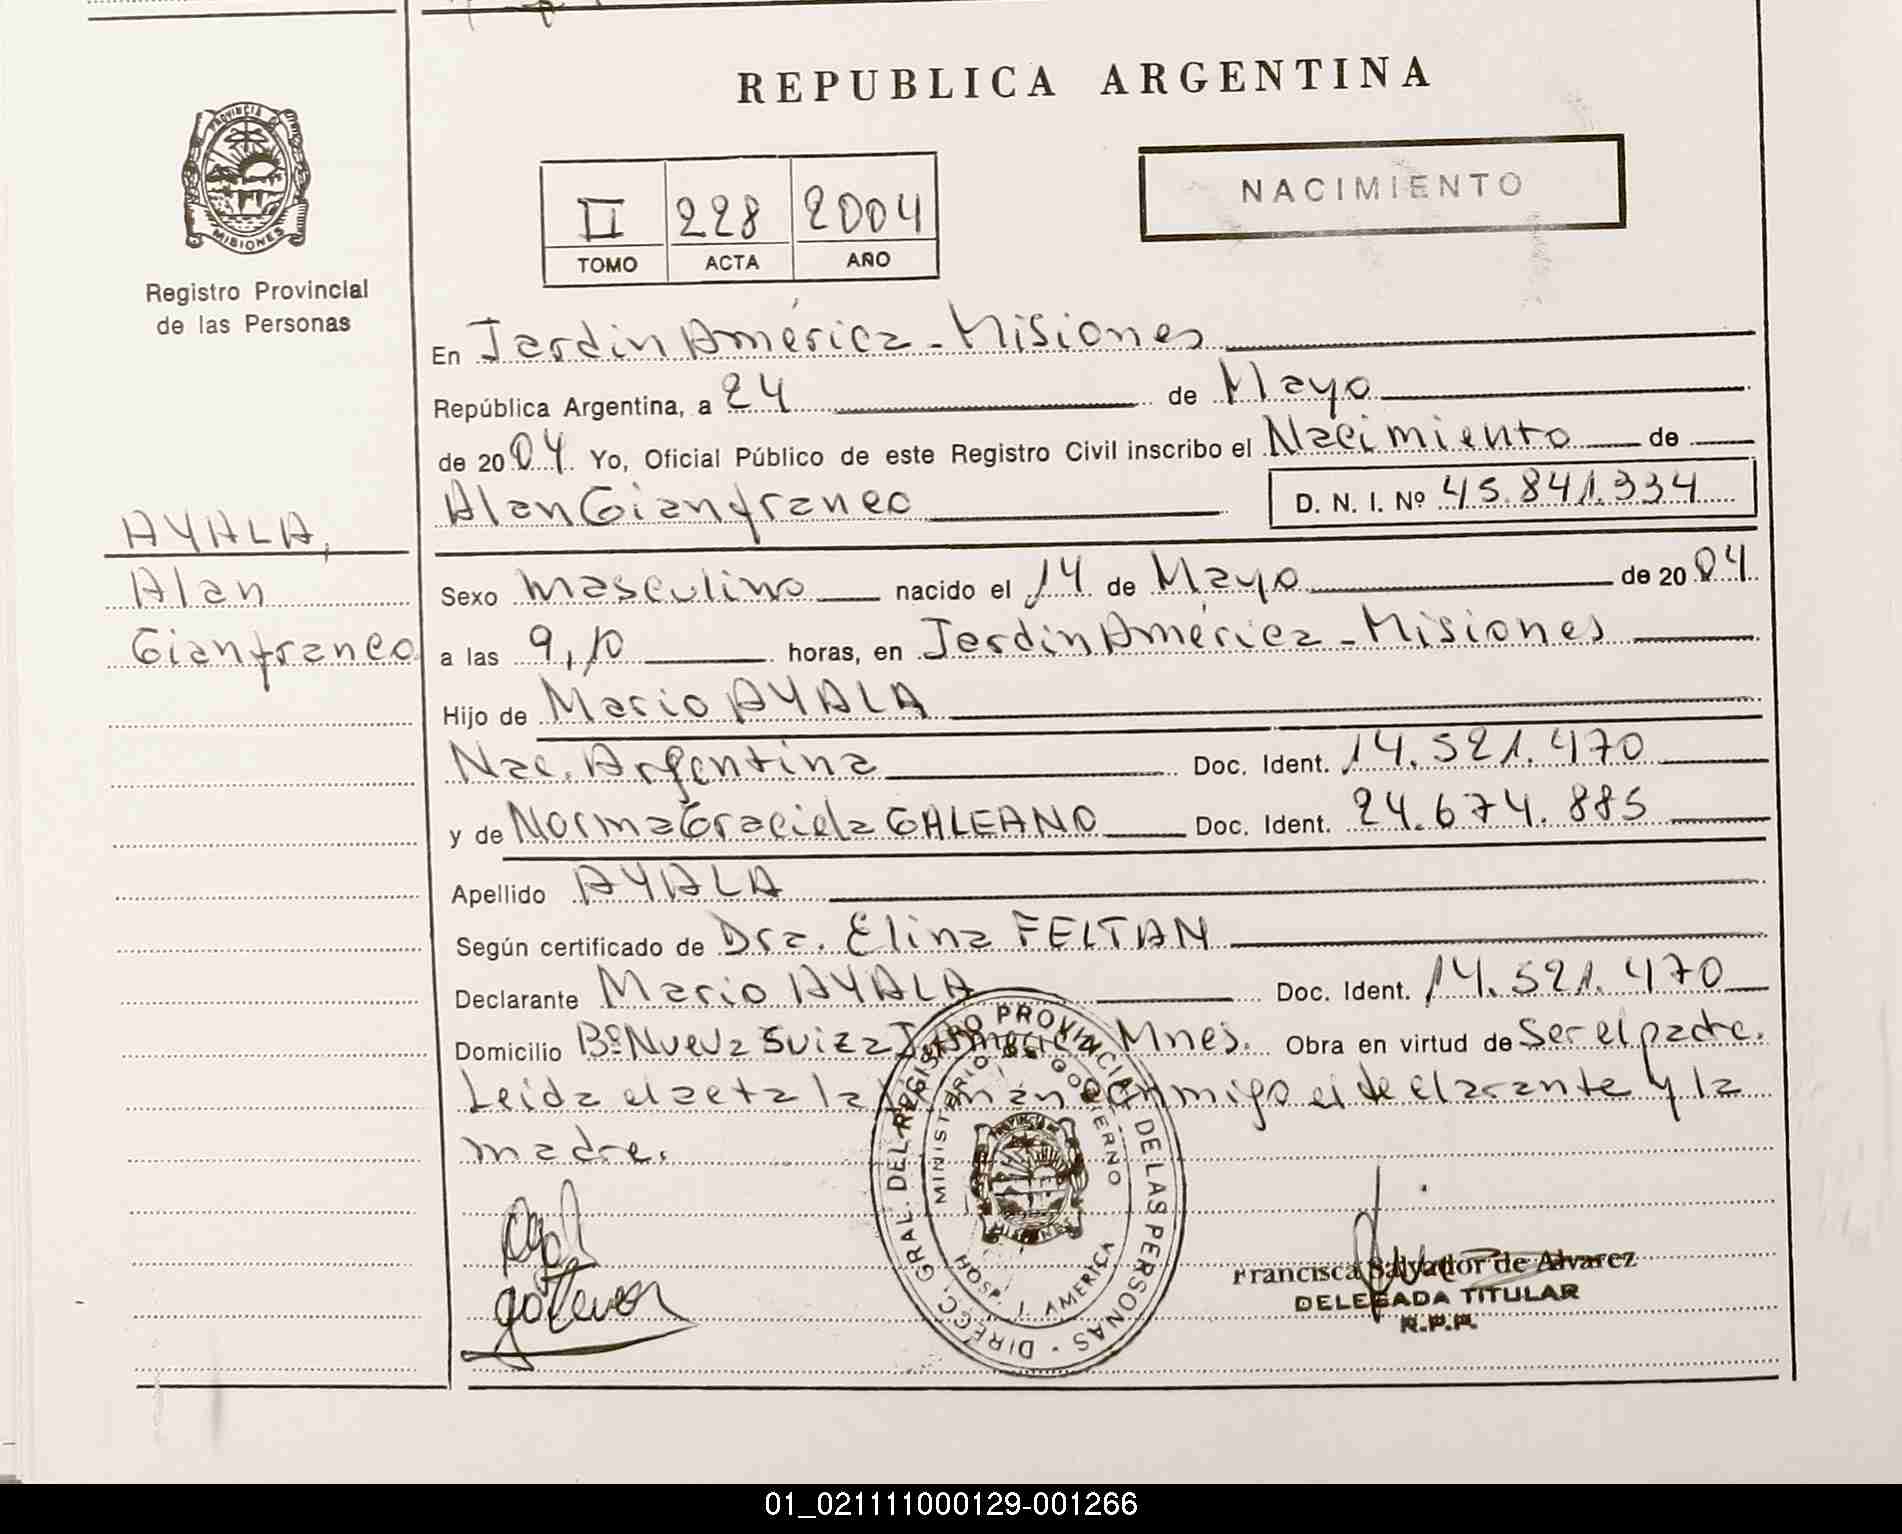 REPUBLICA ARGENTINA
PROVINCIA DE
MISIONES
Registro Provincial
de las Personas
II 228 2004
TOMO ACTA AÑO
NACIMIENTO
En Jardín América - Misiones
República Argentina, a 24 de Mayo
de 2004 Yo, Oficial Público de este Registro Civil inscribo el Nacimiento de
Alan Gianfranco D. N. I. Nº 45.841.334
AYALA,
Alan
Gianfranco
Sexo masculino nacido el 14 de Mayo de 2004
a las 9,10 horas, en Jardín América - Misiones
Hijo de Mario AYALA
Nac. Argentina Doc. Ident. 14.521.470
y de Norma Graciela GALEANO Doc. Ident. 24.674.885
Apellido AYALA
Según certificado de Dra. Elina FELTAN
Declarante Mario AYALA Doc. Ident. 14.521.470
Domicilio Bº Nueva Suiza J. América Mnes. Obra en virtud de Ser el padre.
Leida el acta la firman conmigo el declarante y la
madre.
DIREC. GRAL. DEL REGISTRO PROVINCIAL DE LAS PERSONAS
MINISTERIO DE GOBIERNO
HOSP. J. AMERICA
MISIONES
Francisca Salvador de Alvarez
DELEGADA TITULAR
R.P.P.
01_021111000129-001266